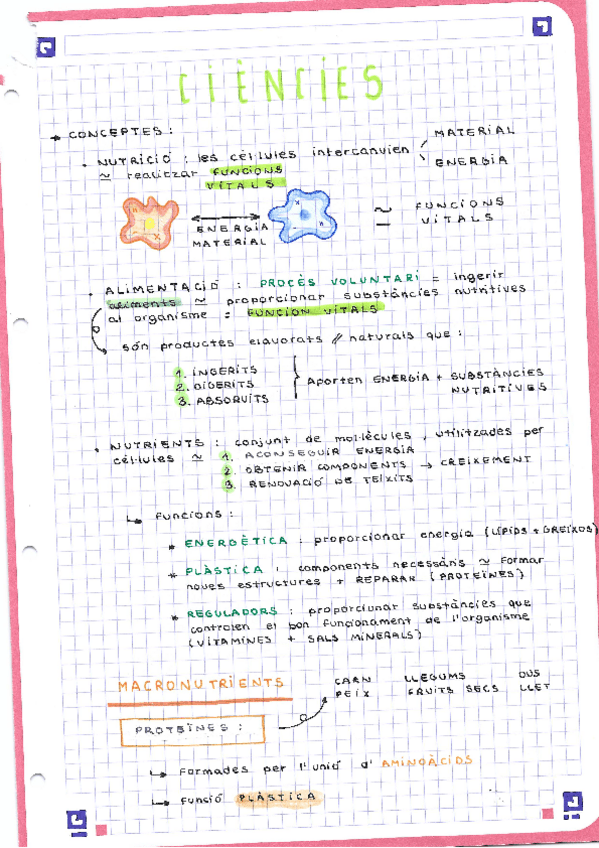 CIÈNCIES
→ CONCEPTES :
• NUTRICIÓ : les cèl·lules intercanvien
MATERIAL
ENERGIA
≃ realitzar FUNCIONS
VITALS
ENERGIA
MATERIAL
≃ FUNCIONS
VITALS
• ALIMENTACIÓ : PROCÈS VOLUNTARI = ingerir
aliments ≃ proporcionar substàncies nutritives
al organisme = FUNCION VITALS
són productes elavorats // naturals que :
1. INGERITS
2. DIGERITS
3. ABSORVITS
Aporten ENERGIA + SUBSTÀNCIES
NUTRITIVES
• NUTRIENTS : conjunt de mol·lècules , utilitzades per
cèl·lules ≃ 1. ACONSEGUIR ENERGIA
2. OBTENIR COMPONENTS → CREIXEMENT
3. RENOVACIÓ DE TEIXITS
↳ Funcions :
* ENERGÈTICA : proporcionar energia (LÍPIDS + GREIXOS)
* PLÀSTICA : components necessàris ≃ Formar
noves estructures + REPARAR (PROTEÏNES)
* REGULADORS : proporcionar substàncies que
controlen el bon funcionament de l'organisme
(VITAMINES + SALS MINERALS)
MACRONUTRIENTS
CARN LLEGUMS OUS
PEIX FRUITS SECS LLET
PROTEÏNES :
↳ Formades per l'unió d' AMINOÀCIDS
↳ Funció PLÀSTICA